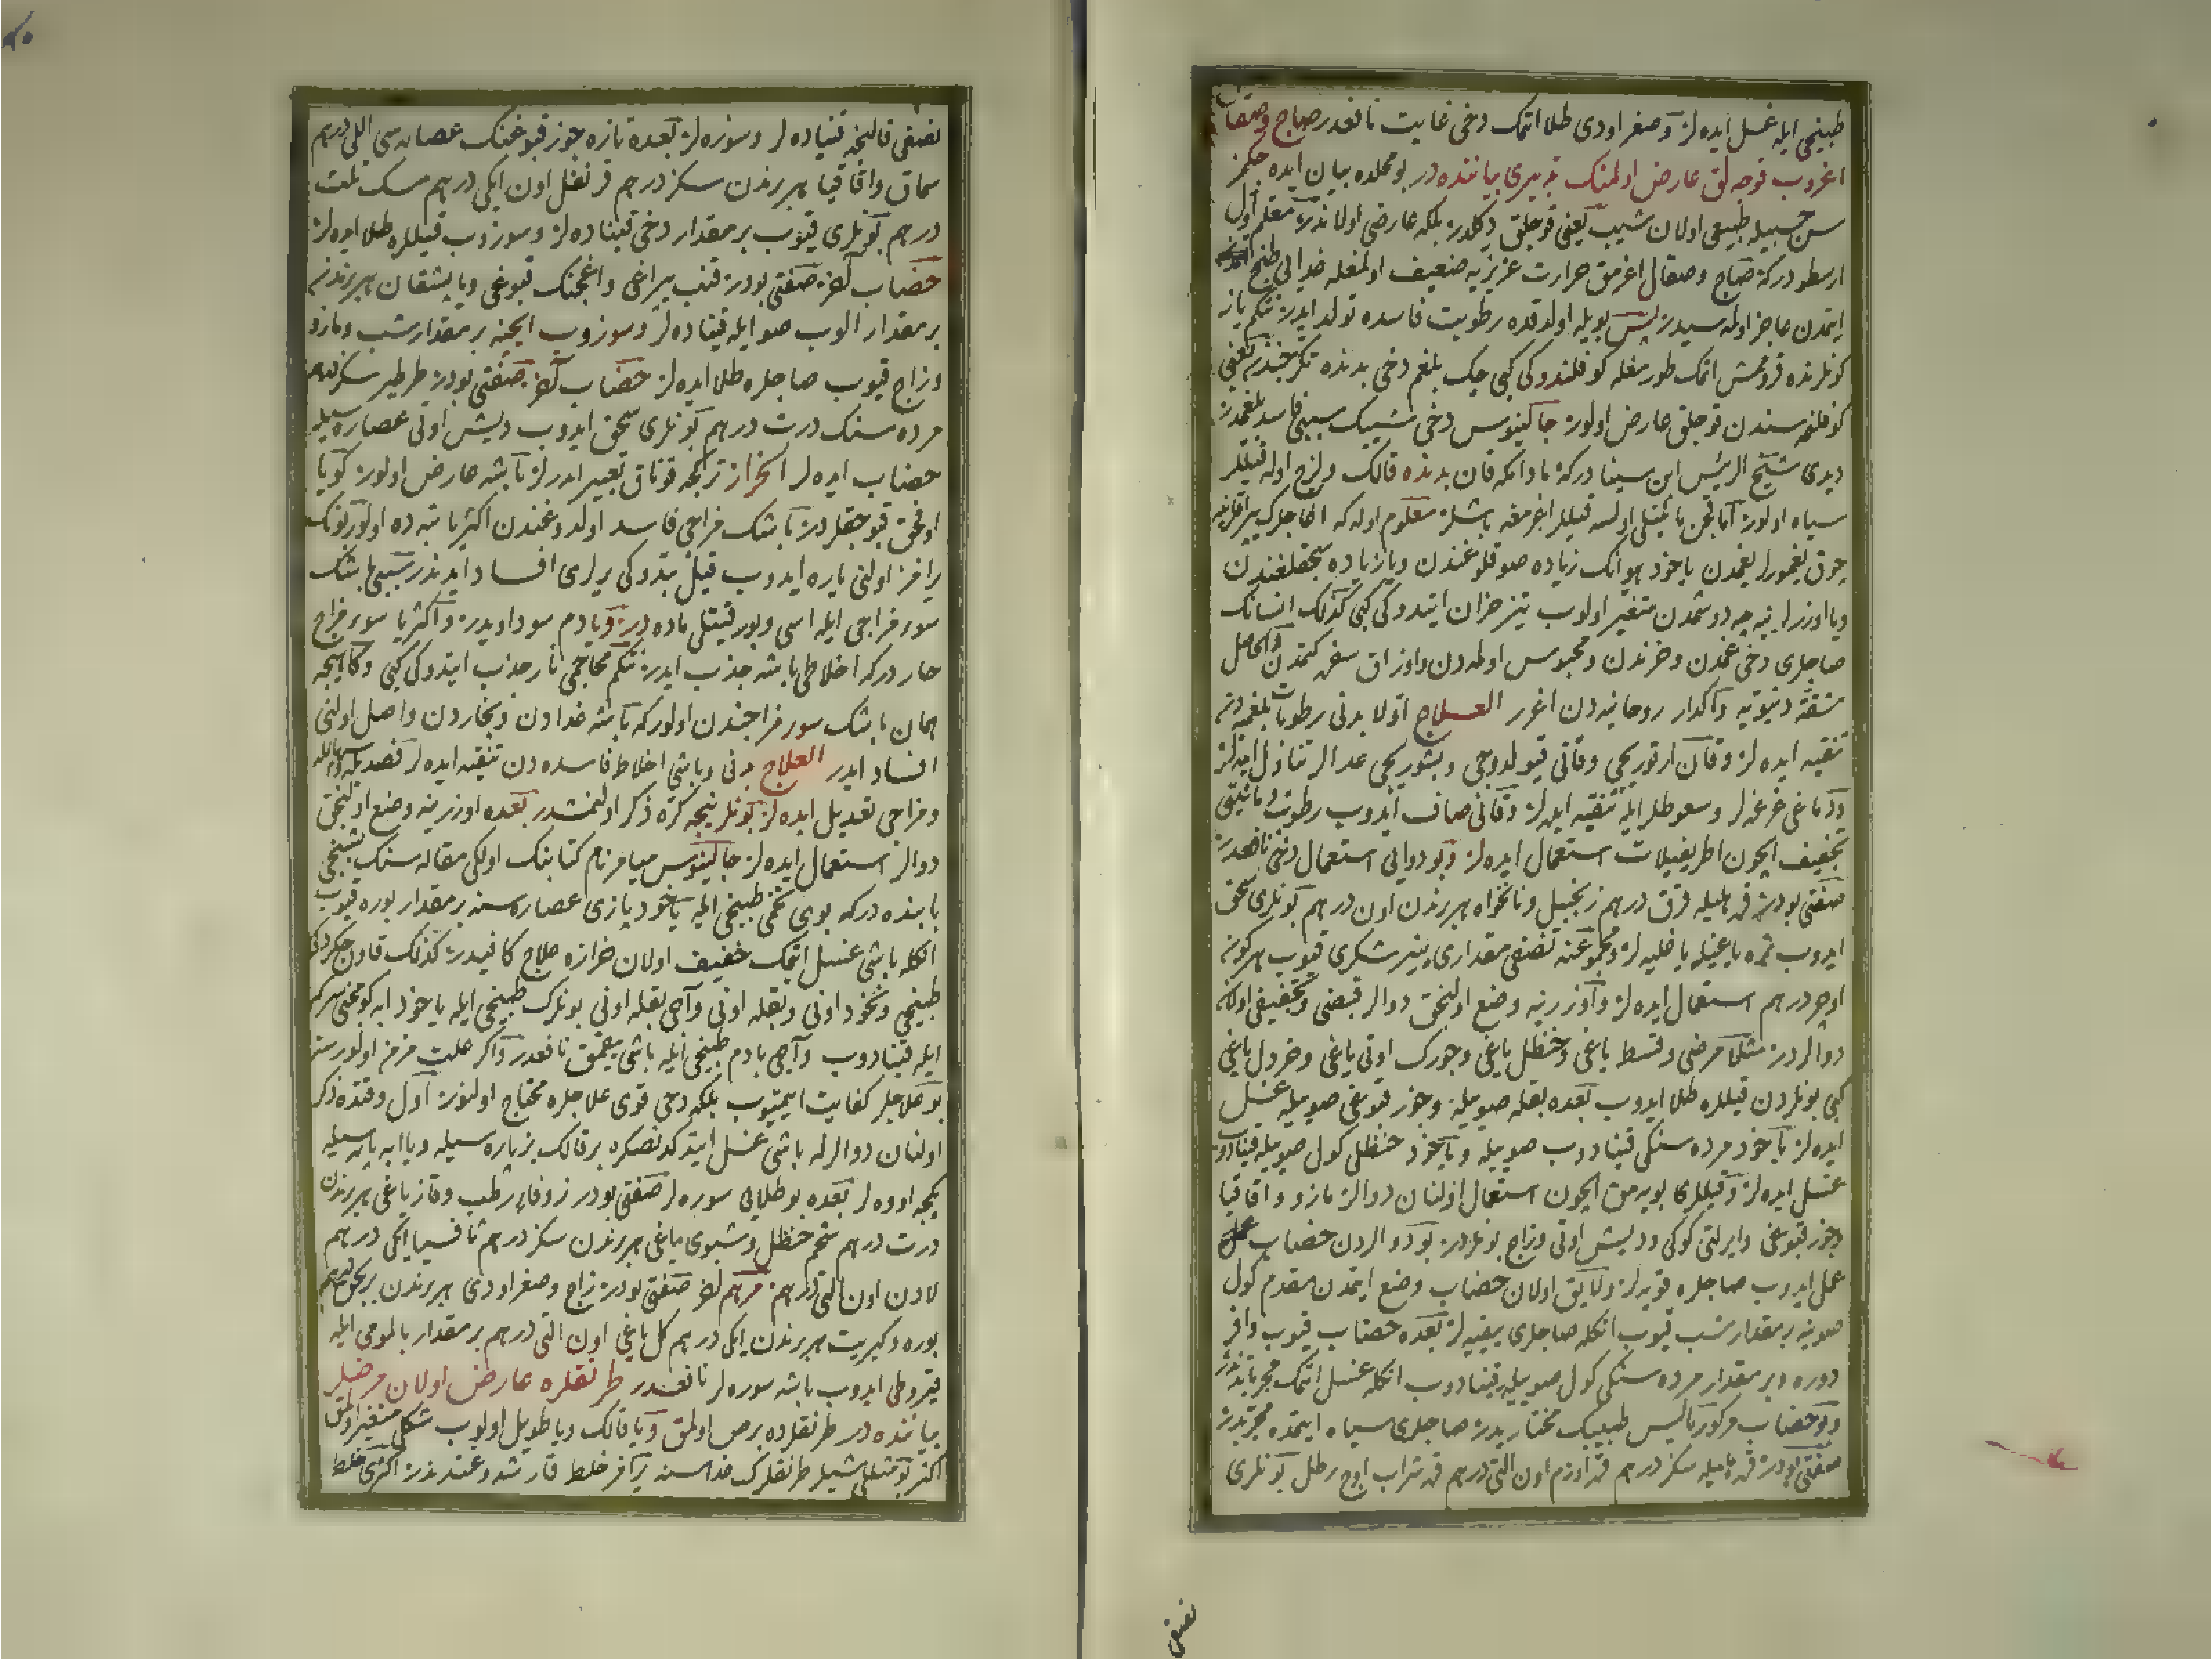 طبیخی ایله غسل ایده لر و صغر اودی طلا اتمك دخی غایت نافعدر صاچ و صقال
اغروب قوجه لق عارض اولمنك تدبیری بیاننده در بو محلده بیان ایده جكمز
سن حسبیله طبیعی اولان شیب یعنی قوجلق دكلدر بلكه عارضی اولاندر معلم اول
ارسطو دركه صاچ و صقال اغرمق حرارت عزیزیه ضعیف اولمغله غدایی طبخ
ایتمدن عاجز اولمه سیدر پس بویله اولدقده رطوبت فاسده تولد ایدر نتكم یاز
كونلرنده قرومش اتمك طورمغله كوفلندوكی كبی چك بلغم دخی بدنده
كوفلنمه سندن قوجلق عارض اولور جالینوس دخی شیبك سببی فاسد بلغمدر
دیدی شیخ الرئیس ابن سینا دركه مادامكه قان بدنده قالك ولزج اوله قیللر
سیاه اولور اما قچن مائیتلی اولسه قیللر اغرمغه باشلر معلوم اوله كه
چوق یغمورلر یغمدن یاخود هوانك زیاده صوقلوغندن ویا زیاده سیجقلغندن
ویا اوزرلرینه چه دوشمدن متغیر اولوب تیز خزان ایتدوكی كبی كذلك انسانك
صاچلری دخی غمدن و حزندن و محبوس اولمه دن و اوزاق سفره كتمدن والحاصل
مشقة دنیویه و اكدار روحانیه دن اغرر العـلاج اولا بدنی رطوبات بلغمیه دن
تنقیه ایده لر و قان ارتوریجی و قانی قیولدوجی و بشوریجی غدالر تناول ایده لر
و دماغی غرغره لر و سعوطلر ایله تنقیه ایده لر و قانی صاف ایدوب رطوبت
تجفیف ایچون اطریفیلات استعمال ایده لر و بو دوایی استعمال دخی نافعدر
صفتی بودر قره هلیله قرق درهم زنجبیل و نانخواه هر برندن اون درهم بونلری سحق
ایدوب تره یاغیله یاغلیه لر و مجموعنه نصفی مقداری پنیر شكری قیوب هر كون
اوچر درهم استعمال ایده لر و اوزرینه وضع اولنجق دوالر قبضی و تجفیفی اولان
دوالردر مثلا مرضی و قسط یاغی و حنظل یاغی و چورك اوتی یاغی و خردل یاغی
كبی بونلردن قیللره طلا ایدوب بعده بقله صوییله و جوز قبوغی صوییله غسل
ایده لر یاخود مرده سنكی قینادوب صوییله ویاخود حنظلی كول صوییله قینادوب
غسل ایده لر و قیللری بویه مق ایچون استعمال اولنان دوالر مازو و اقاقیا
و جوز قبوغی و ایرلتی كوكی و دیش اوتی و زاج بونلردر بو دوالردن خضاب
عمل ایدوب صاچلره قویه لر و لایق اولان خضاب وضع ایتمدن مقدم كول
صوینه بر مقدار شب قیوب انكله صاچلری ییقیه لر بعده خضاب قیوب
دوره و بر مقدار مرده سنكی كول صوییله قینادوب انكله غسل اتمك مجرباتدندر
و بو خضاب طبیبك مختاریدر صاچلری سیاه ایتمده مجربدر
صفتی بودر قره هلیله سكز درهم قره اوزم اون التی درهم قره شراب اوچ رطل بونلری
نصفی
نصفی قالنجه قینادهلر و سوزه لر بعده تازه جوز قبوغنك عصاره سی اللی درهم
سماق و اقاقیا هر برندن سكز درهم قرنفل اون ایكی درهم مسك ثلث
درهم بونلری قیوب بر مقدار دخی قیناده لر و سوزوب قیللره طلا ایده لر
خضاب آخر صفتی بودر قنب یپراغی و اغجنك قبوغی هر برندن
بر مقدار الوب صو ایله قیناده لر و سوزوب ایچنه بر مقدار شب و مازو
و زاج قیوب صاچلره طلا ایده لر خضاب آخر صفتی بودر طرطیر سكز درهم
مرده سنك درت درهم بونلری سحق ایدوب دیش اوتی عصاره سیله
خضاب ایده لر الخزاز تركجه قوناق تعبیر ایدرلر باشه عارض اولور كویا
اوفجق قبوجقلردر باشك مزاجی فاسد اولدوغندن اكثریا تپه ده اولور بونك
یرامز اولنی یاره ایدوب قیل بتدوكی یرلری افساد ایدندر سببی باشك
سوء مزاجی ایله اسی و بورقیتلی ماده در ویا دم سوداویدر و اكثریا سوء مزاج
حار دركه اخلاطی باشه جذب ایدر نتكم محاجمی نار جذب ایتدوكی كبی و كاهیجه
همان باشك سوء مزاجندن اولور كه باشه غدادن و بخاردن واصل اولنی
افساد ایدر العلاج بدنی و باشی اخلاط فاسده دن تنقیه ایده لر فصدیله
و مزاجی تعدیل ایده لر بونلر نیجه كره ذكر اولنمشدر بعده اوزرینه وضع اولنجق
دوالر استعمال ایده لر جالینوس میامر نام كتابنك اولكی مقاله سنك بشنجی
بابنده دركه بوی تخمی طبیخی ایله یاخود پازی عصاره سنه بر مقدار بوره قیوب
انكله باشی غسل اتمك خفیف اولان خزازه علاج كافیدر كذلك قاون چكردكی
طبیخی و نخود اونی و بقله اونی و آجی بقله اونی بونلرك طبیخی ایله یاخود ابه كومجنی سركه
ایله قینادوب و آجی بادم طبیخی ایله باشی ییقمق نافعدر و اكر علت مزمن اولورسه
بو علاجلر كفایت ایتمیوب بلكه دخی قوی علاجلره محتاج اولنور اول وقتده ذكر
اولنان دوالرله باشی غسل ایتدكدنصكره بر قالك بز پاره سیله
یكجه اووه لر بعده بو طلایی سوره لر صفتی بودر زوفای رطب و قاز یاغی هر برندن
درت درهم شحم حنظل و شبوی یاغی هر برندن سكز درهم ثافسیا ایكی درهم
لادن اون التی درهم مرهم آخر صفتی بودر زاج و صغر اودی هر برندن
بوره و كبریت هر برندن ایكی درهم كل یاغی اون التی درهم بر مقدار بالمومی ایله
قیروطی ایدوب باشه سوره لر نافعدر طرنقلره عارض اولان مرضلر
بیاننده در طرنقلرده برص اولمق ویا قالك ویا طویل اولوب شكلی متغیر اولمق
اكثر بو مثللی شیلر طرنقلرك غداسنه یرامز خلط قارشدوغندندر اكثری خلط